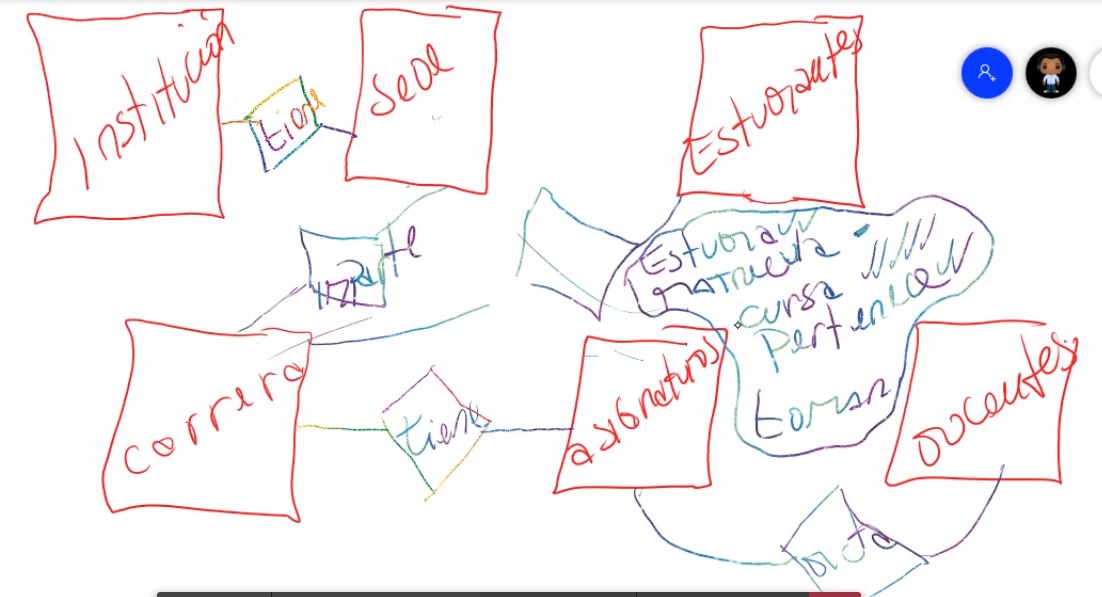 Institución
tiene
Sede
Estudiantes
imparte
Estudian
matricula
cursa
Pertenecen
toman
Carrera
tiene
asignaturas
Docentes
dicta